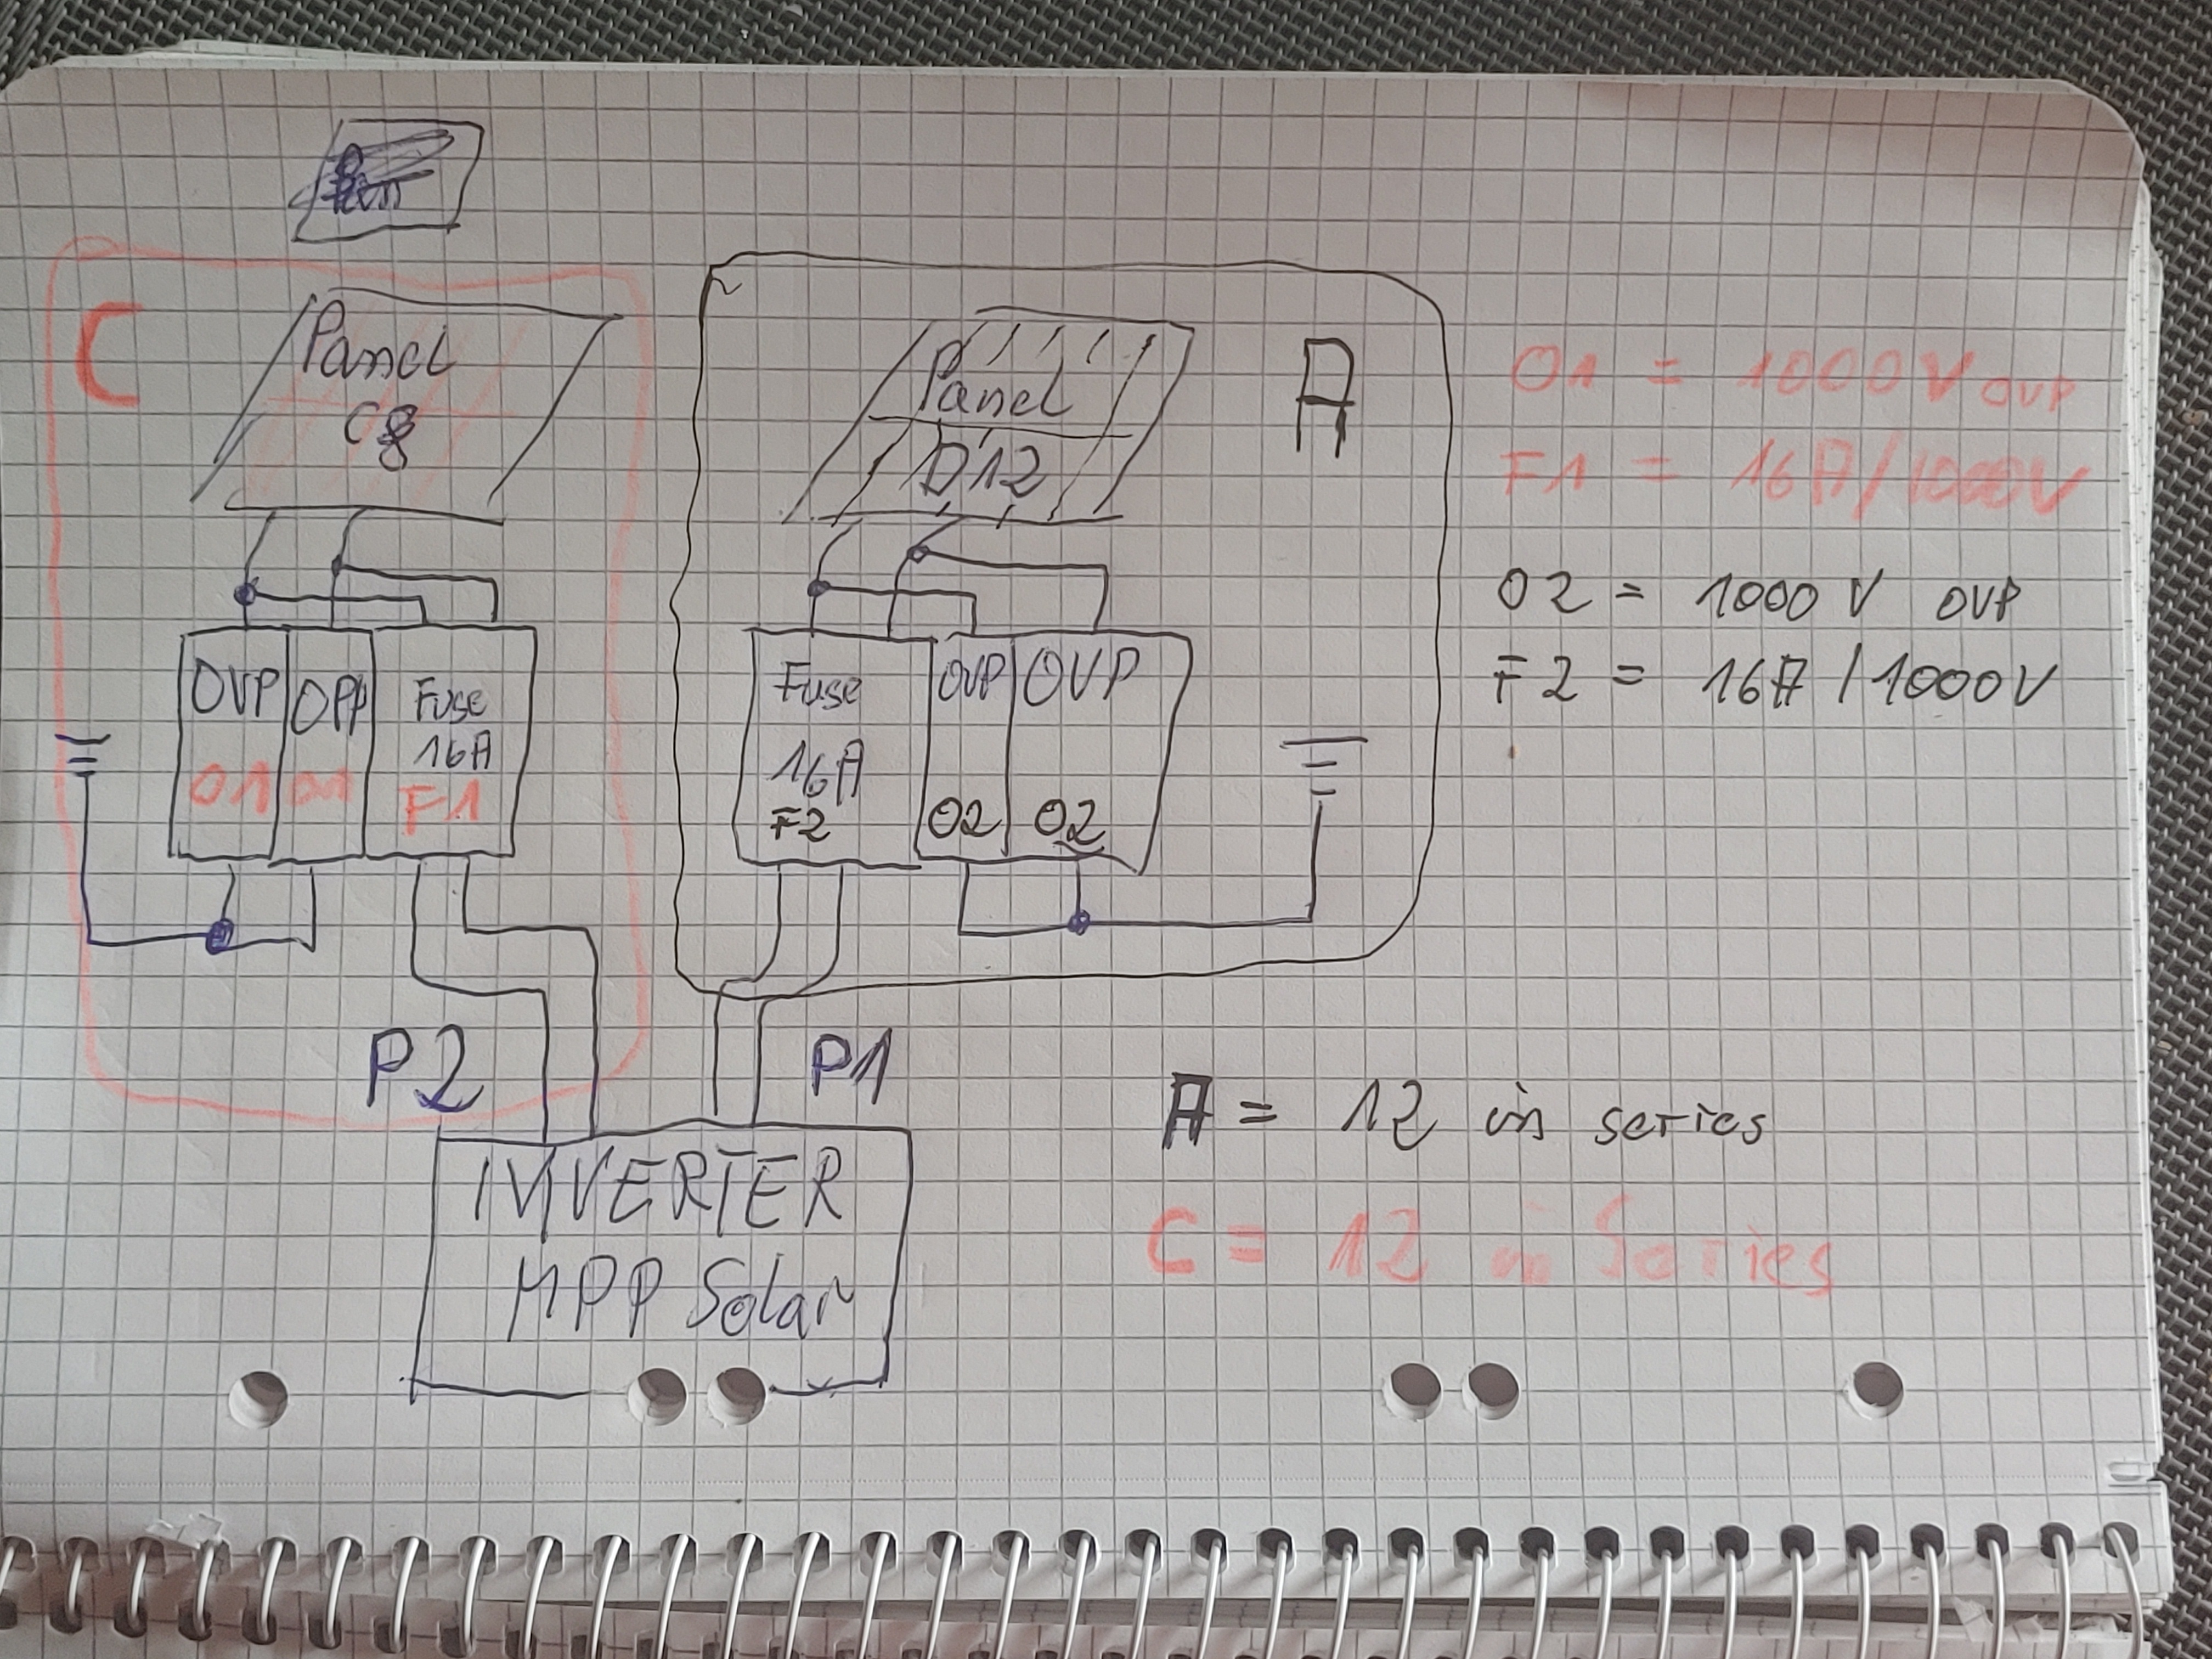 C
Panel
C8
OVP
O1
Fuse
16A
F1
P2
A
Panel
D12
Fuse
16A
F2
OVP
O2
OVP
O2
P1
INVERTER
MPP Solar
O1 = 1000V OVP
F1 = 16A/1000V
O2 = 1000 V OVP
F2 = 16A / 1000V
A = 12 in series
C = 12 in Series